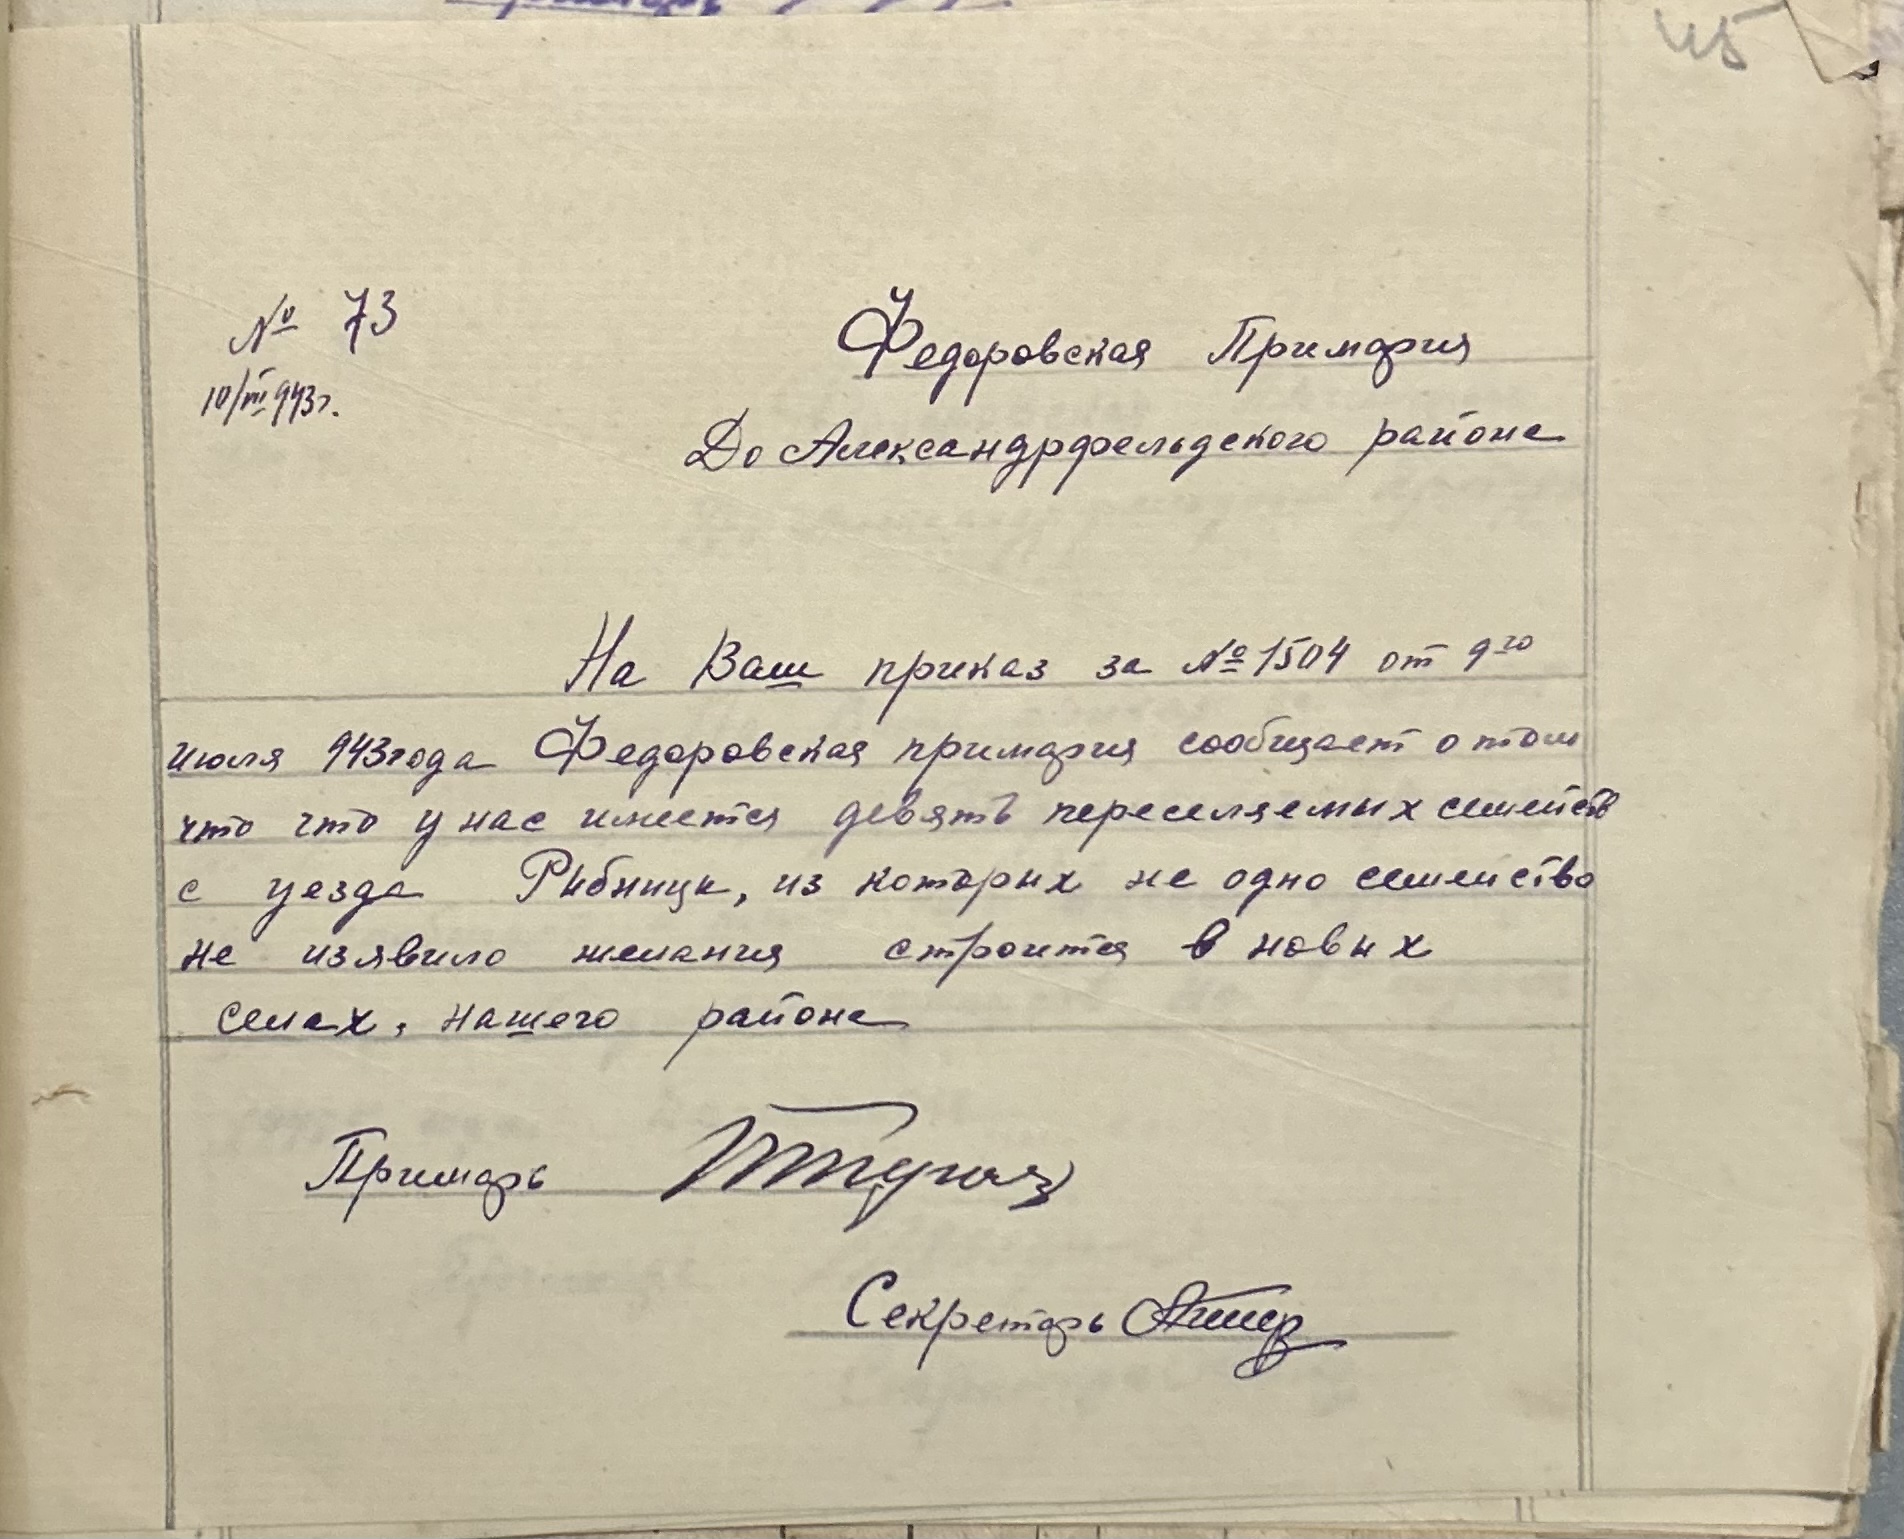 45
№ 73
10/VII 943г.
Федоровская Примария
До Александрфельдского района
На Ваш приказ за № 1504 от 9го
июля 943 года Федоровская примария сообщает о том
что что у нас имеется девять переселяемых семейств
с уезда Рыбницы, из которых не одно семейство
не изявило желания строится в новых
селах, нашего района
Примарь
Секретарь